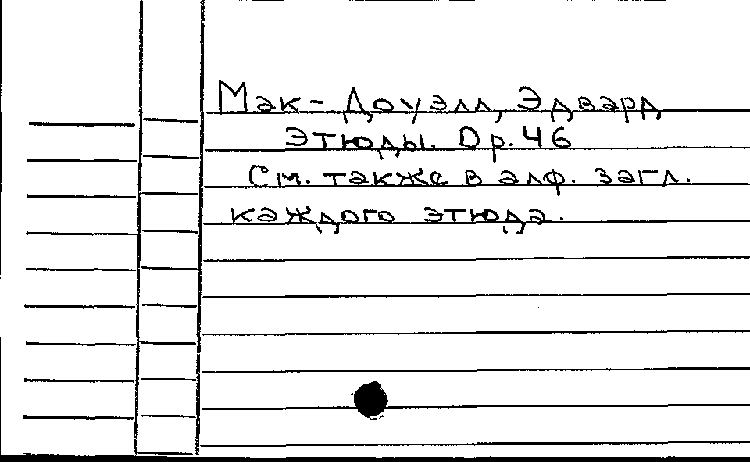 Мак-Доуэлл, Эдвард
Этюды. Op. 46
См. также в алф. загл.
каждого этюда.